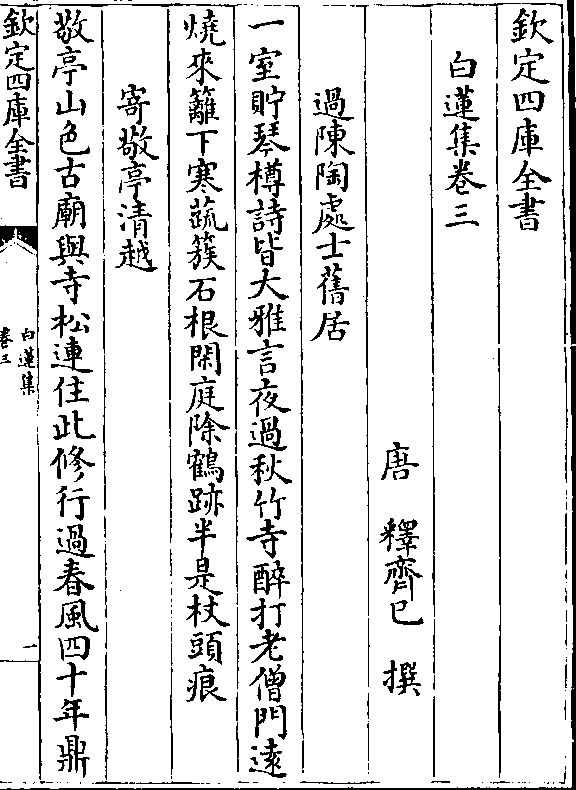 欽定四庫全書
白蓮集卷三
唐 釋齊己 撰
過陳陶處士舊居
一室貯琴樽詩皆大雅言夜過秋竹寺醉打老僧門遠
燒來籬下寒蔬簇石根閑庭除鶴跡半是杖頭痕
寄敬亭清越
敬亭山色古廟與寺松連住此修行過春風四十年鼎
欽定四庫全書
白蓮集
卷三
一